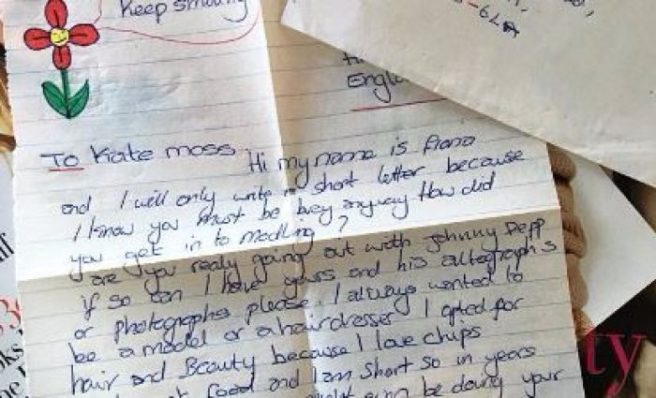 Keep smiling
6LA
Engla
To Kate moss Hi my name is Fiona
and I will only write a short letter because
I know you must be busy anyway How did
you get in to modling?
are you realy going out with Johnny Depp
if so can I have yours and his autographs
or photographs please. I always wanted to
be a model or a hairdresser I opted for
hair and Beauty because I love chips
food and I am short so in years
be doing your
ty